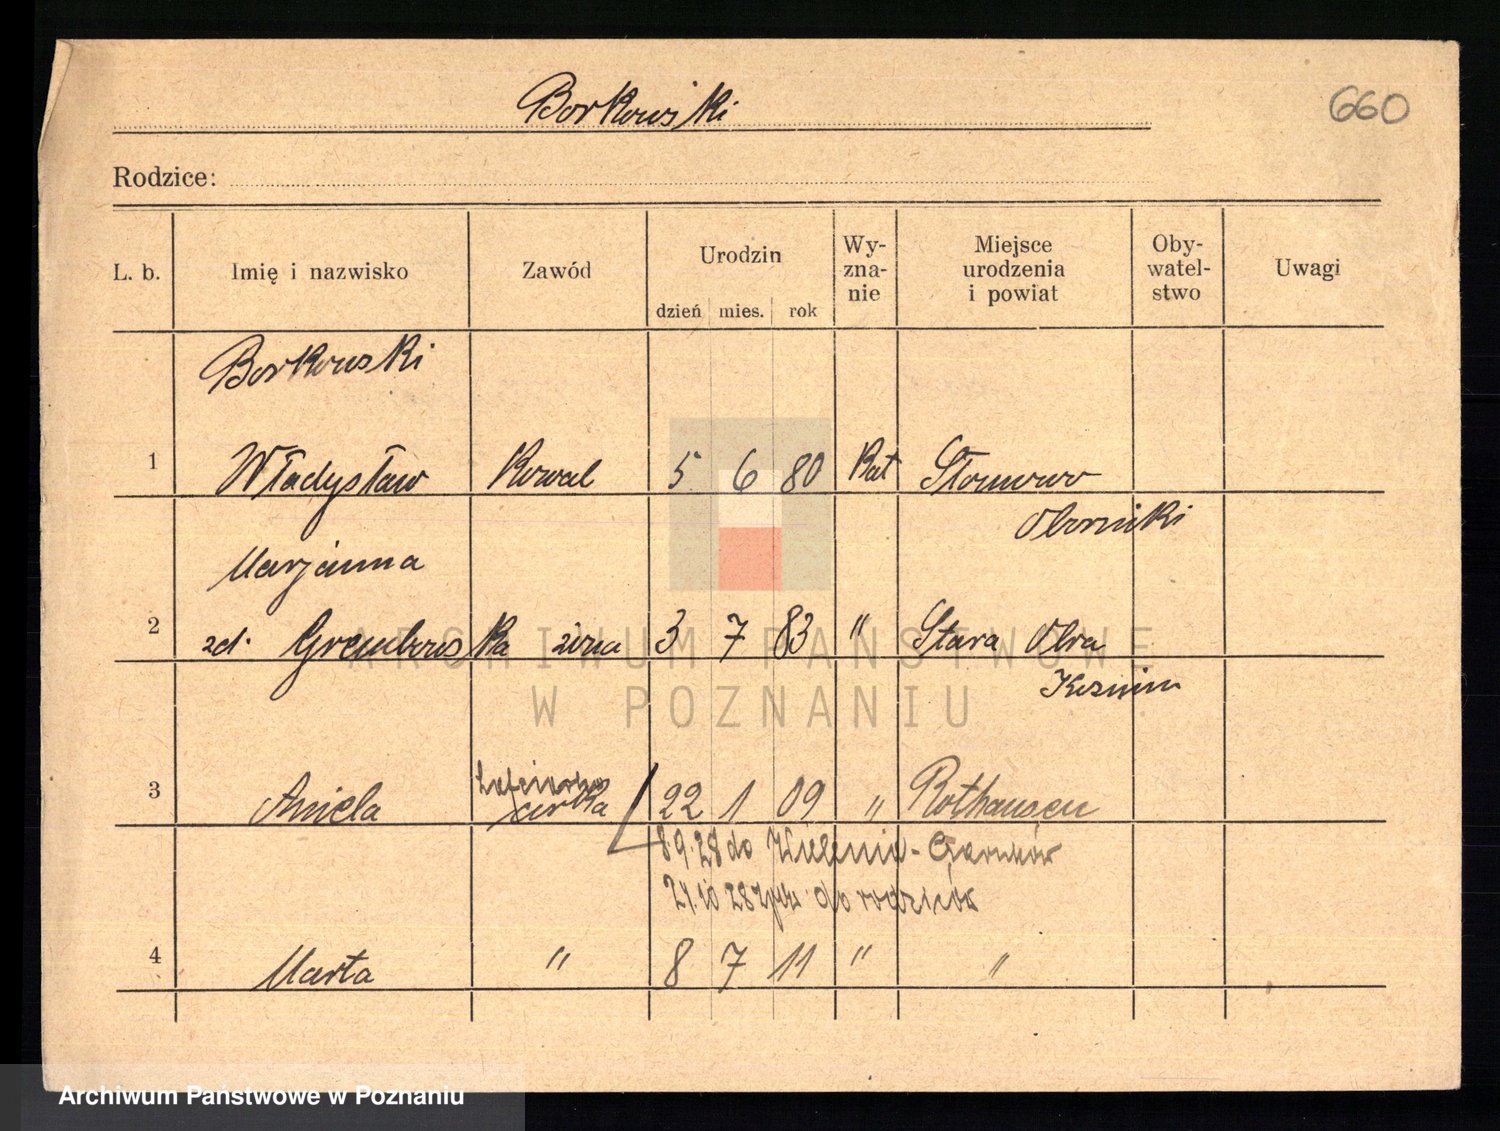 Borkowski
660
Rodzice:
L. b. Imię i nazwisko Zawód Urodzin dzień mies. rok Wy-zna-nie Miejsce urodzenia i powiat Oby-watel-stwo Uwagi
Borkowski
1 Władysław Kowal 5 6 80 Kat Słomowo
Oborniki
Marjanna
2 zd. Grembowska żona 3 7 83 " Stara Obra
Koźmin
3 Aniela córka 22 1 09 " Rothausen
8.9.28 do Wielenia - Czarnków
21.10 28 do rodziców
4 Marta " 8 7 11 " "
ARCHIWUM PAŃSTWOWE
W POZNANIU
Archiwum Państwowe w Poznaniu